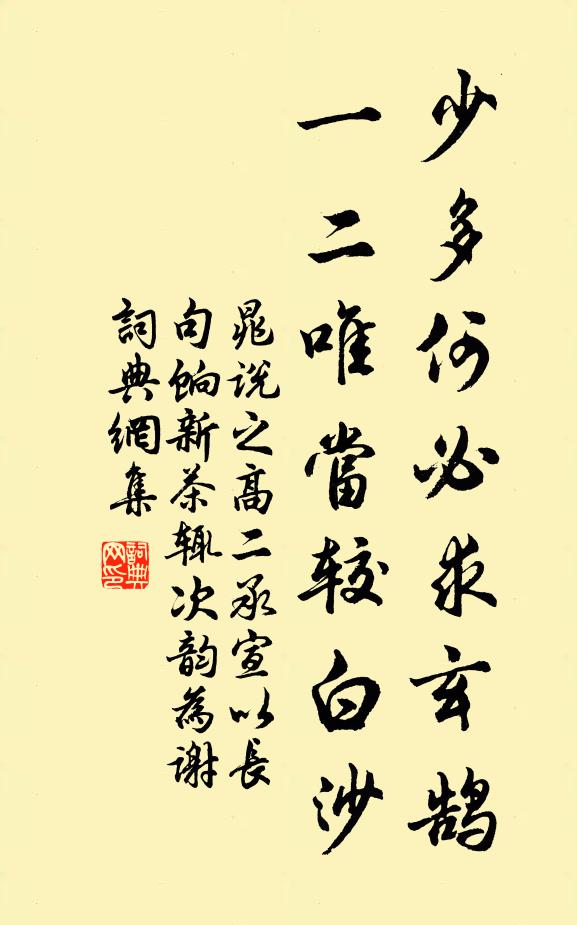 少多何必求玄鹄
一二唯當較白沙
晁说之高二承宣以長
句餉新茶辄次韵為谢
詞典網集
詞典
网印